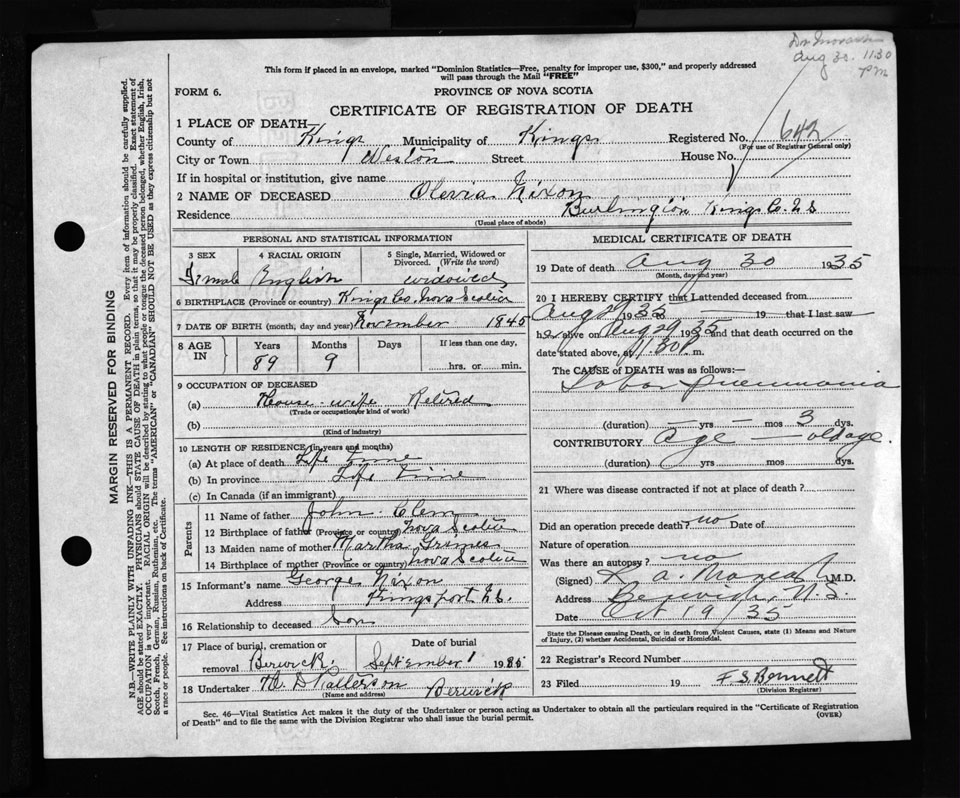 Aug 30 1130
PM
This form if placed in an envelope, marked "Dominion Statistics—Free, penalty for improper use, $300," and properly addressed
will pass through the Mail "FREE"
FORM 6.
PROVINCE OF NOVA SCOTIA
CERTIFICATE OF REGISTRATION OF DEATH
1 PLACE OF DEATH—
County of Kings Municipality of Kings Registered No. 642
(For use of Registrar General only)
City or Town Weston Street House No.
If in hospital or institution, give name
2 NAME OF DECEASED Olevia Nixon
Residence Burlington Kings Co. N.S
(Usual place of abode)
PERSONAL AND STATISTICAL INFORMATION
3 SEX 4 RACIAL ORIGIN 5 Single, Married, Widowed or
Divorced. (Write the word)
Female English widowed
6 BIRTHPLACE (Province or country) Kings Co. Nova Scotia
7 DATE OF BIRTH (month, day and year) November 1845
8 AGE IN Years Months Days If less than one day,
89 9 hrs. or min.
9 OCCUPATION OF DECEASED
(a) House-wife Retired
(Trade or occupation or kind of work)
(b)
(Kind of industry)
10 LENGTH OF RESIDENCE (in years and months)
(a) At place of death Life time
(b) In province Life time
(c) In Canada (if an immigrant)
Parents
11 Name of father John Clem
12 Birthplace of father (Province or country) Nova Scotia
13 Maiden name of mother Martha Grimes
14 Birthplace of mother (Province or country) Nova Scotia
15 Informant's name George Nixon
Address Kingsport N.S.
16 Relationship to deceased Son
17 Place of burial, cremation or Date of burial
removal Berwick. September 1 1935
18 Undertaker H. D Patterson Berwick
(Name and address)
MEDICAL CERTIFICATE OF DEATH
19 Date of death Aug 30 1935
(Month, day and year)
20 I HEREBY CERTIFY that I attended deceased from
Aug 1935 — 19 — that I last saw
her alive on Aug 29 1935 and that death occurred on the
date stated above, at 1130 P. m.
The CAUSE of DEATH was as follows:—
Lobar pneumonia
(duration) — yrs — mos 3 dys.
CONTRIBUTORY Age — old age.
(duration) yrs mos. dys.
21 Where was disease contracted if not at place of death?
Did an operation precede death no Date of
Nature of operation
Was there an autopsy? no
(Signed) M.D.
Address Berwick, N.S.
Date Oct 19 35
State the Disease causing Death, or in death from Violent Causes, state (1) Means and Nature
of Injury, (2) whether Accidental, Suicidal or Homicidal.
22 Registrar's Record Number
23 Filed 19 F S Bonnett
(Division Registrar)
Sec. 46—Vital Statistics Act makes it the duty of the Undertaker or person acting as Undertaker to obtain all the particulars required in the "Certificate of Registration
of Death" and to file the same with the Division Registrar who shall issue the burial permit.
(OVER)
MARGIN RESERVED FOR BINDING
N.B.—WRITE PLAINLY, WITH UNFADING INK—THIS IS A PERMANENT RECORD. Every item of information should be carefully supplied.
AGE should be stated EXACTLY. PHYSICIANS should STATE CAUSE OF DEATH in plain terms, so that it may be properly classified. Exact statement of
OCCUPATION is very important. RACIAL ORIGIN will be described by stating to what people or tongue the deceased person belonged, whether English, Irish,
Scotch, French, German, Russian, Ruthenian, etc. The terms "AMERICAN" or "CANADIAN" SHOULD NOT BE USED as they express citizenship but not
a race or people. See instructions on back of Certificate.